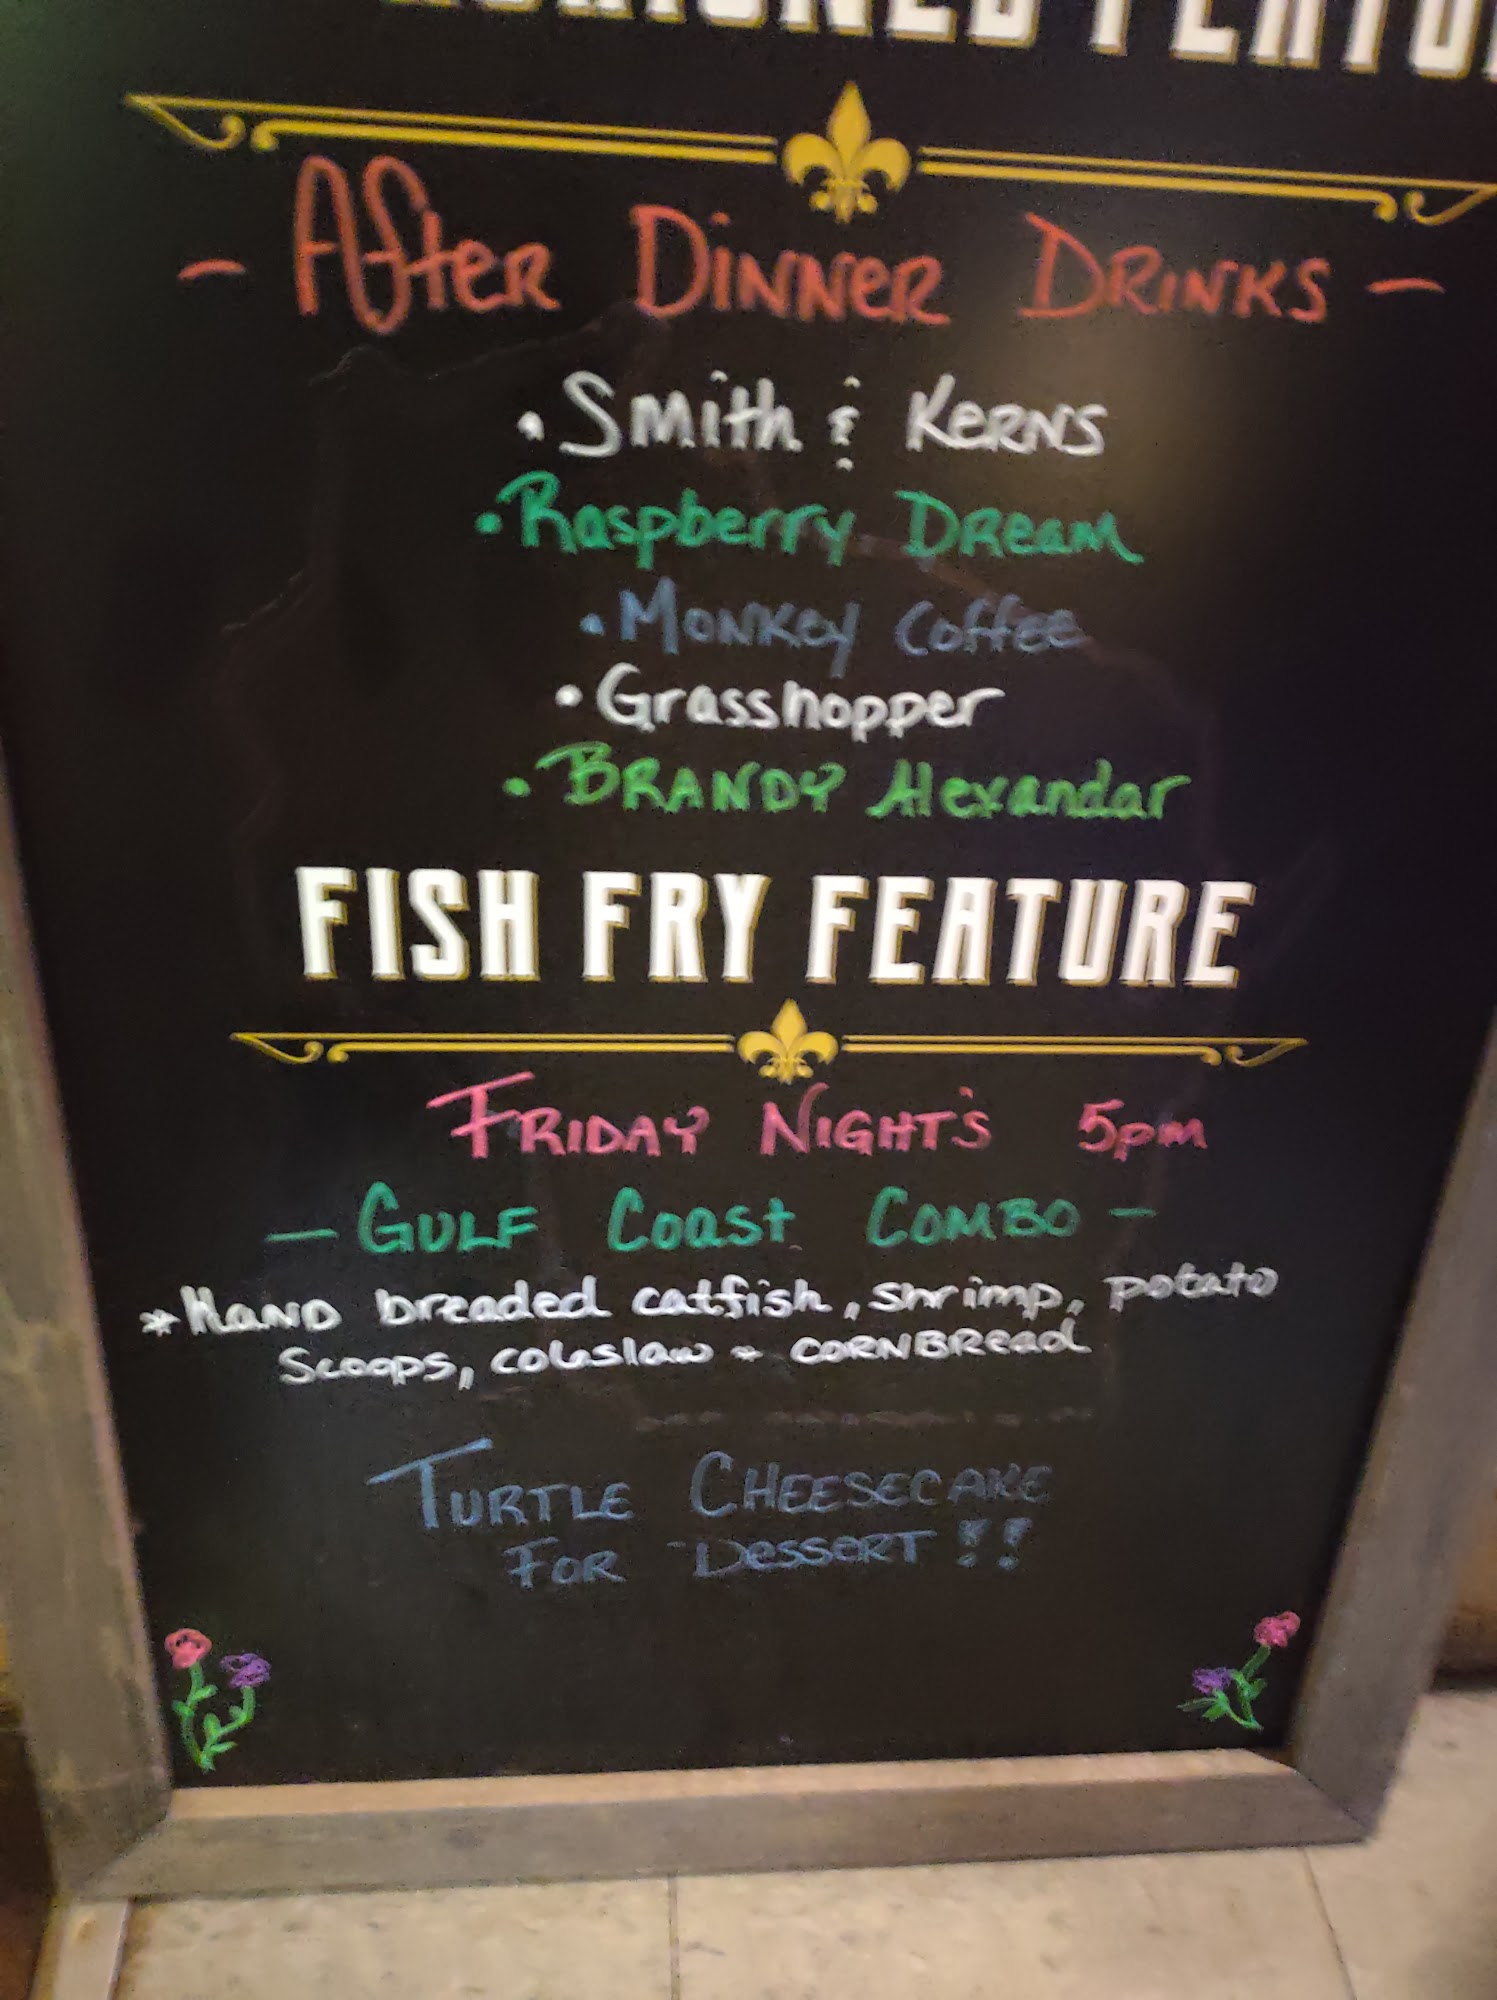 FEATU
- After Dinner Drinks -
• Smith & Kerns
• Raspberry Dream
• Monkey Coffee
• Grasshopper
• Brandy Alexandar
FISH FRY FEATURE
Friday Night's 5pm
- Gulf Coast Combo -
* Hand breaded catfish, shrimp, potato
Scoops, coleslaw + cornbread
Turtle Cheesecake
For Dessert!!